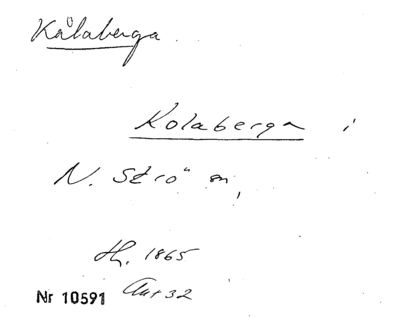 Kålaberga.
Kolaberga i
N. Strö sn,
Hf. 1865
Nr 10591 Aur 32